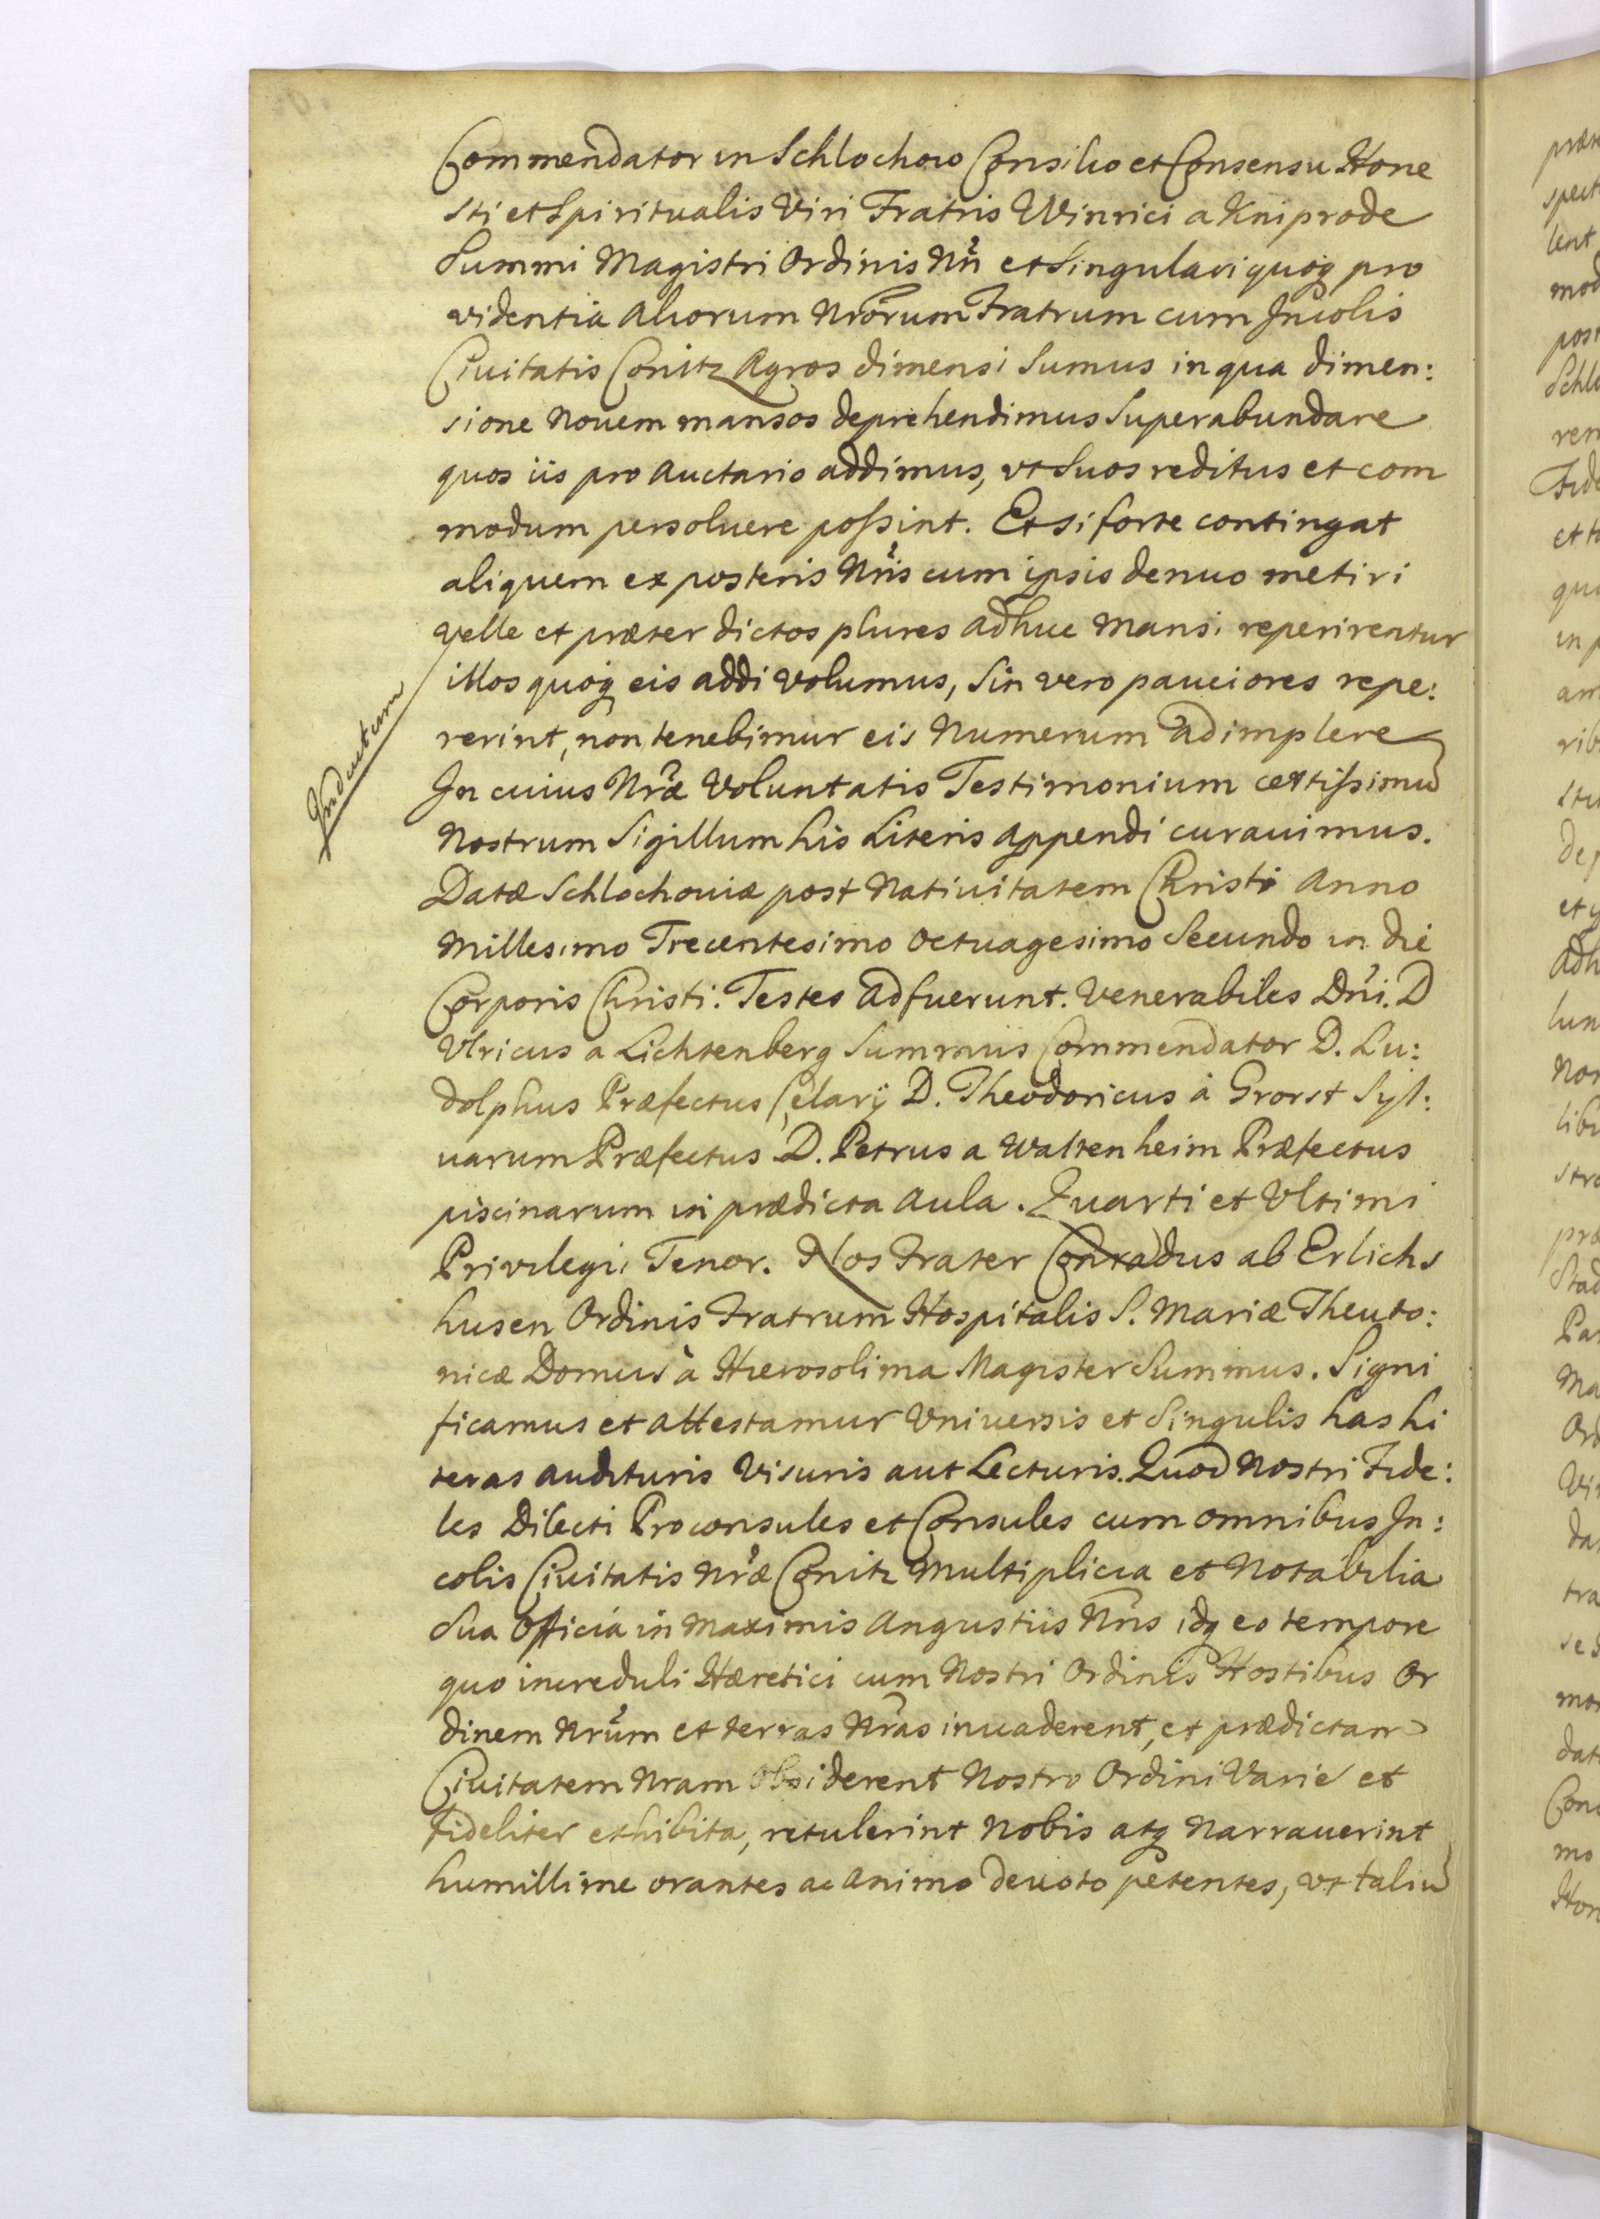 Commendator in Schlochow Consilio et Consensu Hone
sti et Spiritualis Viri Fratris Winrici a Kniprode
Summi Magistri Ordinis Nri et Singulari quoq pro
videntia Aliorum Nrorum Fratrum cum Incolis
Ciuitatis Conitz Agros dimensi sumus in qua dimen:
sione Nouem mansos deprehendimus Superabundare
quos iis pro Auctario addimus, vt Suos reditus et com
modum persoluere possint. Et si forte contingat
aliquem ex posteris Nris cum ipsis denuo metiri
velle et præter dictos plures adhuc Mansi reperirentur
illos quoq eis addi volumus, Sin vero pauciores repe:
rerint, non tenebimur eis Numerum adimplere
In cuius Nræ Voluntatis Testimonium certissimu
Nostrum Sigillum his Literis appendi curauimus.
Datæ Schlochouiæ post Natiuitatem Christi Anno
Millesimo Trecentesimo Octuagesimo Secundo in die
Corporis Christi. Testes adfuerunt. Venerabiles Dni. D
Vlricus a Lichtenberg Summus Commendator D. Lu:
dolphus Præfectus Celarÿ D. Theodoricus à Grorst Syl:
uarum Præfectus D. Petrus a Waltenheim Præfectus
piscinarum in prædicta Aula. Quarti et Vltimi
Privilegii Tenor. Nos Frater Conradus ab Erlichs
husen Ordinis Fratrum Hospitalis S. Mariæ Theuto:
nicæ Domus à Hierosolima Magister Summus. Signi
ficamus et attestamur Vniuersis et Singulis has Li
teras audituris Visuris aut Lecturis. Quod Nostri Fide:
les Dilecti Proconsules et Consules cum omnibus In:
colis Ciuitatis Nræ Conitz Multiplicia et Notabilia
Sua Officia in Maximis Angustiis Nris idq eo tempore
quo increduli Hæretici cum Nostri Ordinis Hostibus Or
dinem Nrum et terras Nras inuaderent, et prædictam
Ciuitatem Nram Obsiderent Nostro Ordini Varie et
Fideliter exhibita, retulerint Nobis atq Narrauerint
humillime orantes ac animo deuoto petentes, vt taliu
Inductum